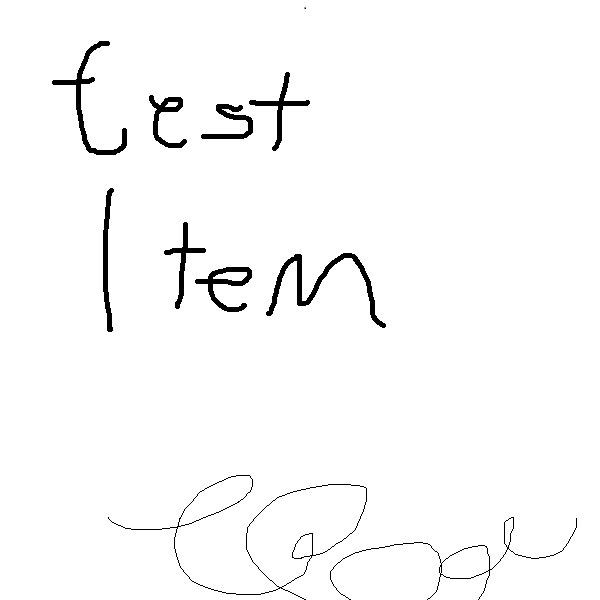 test
Item